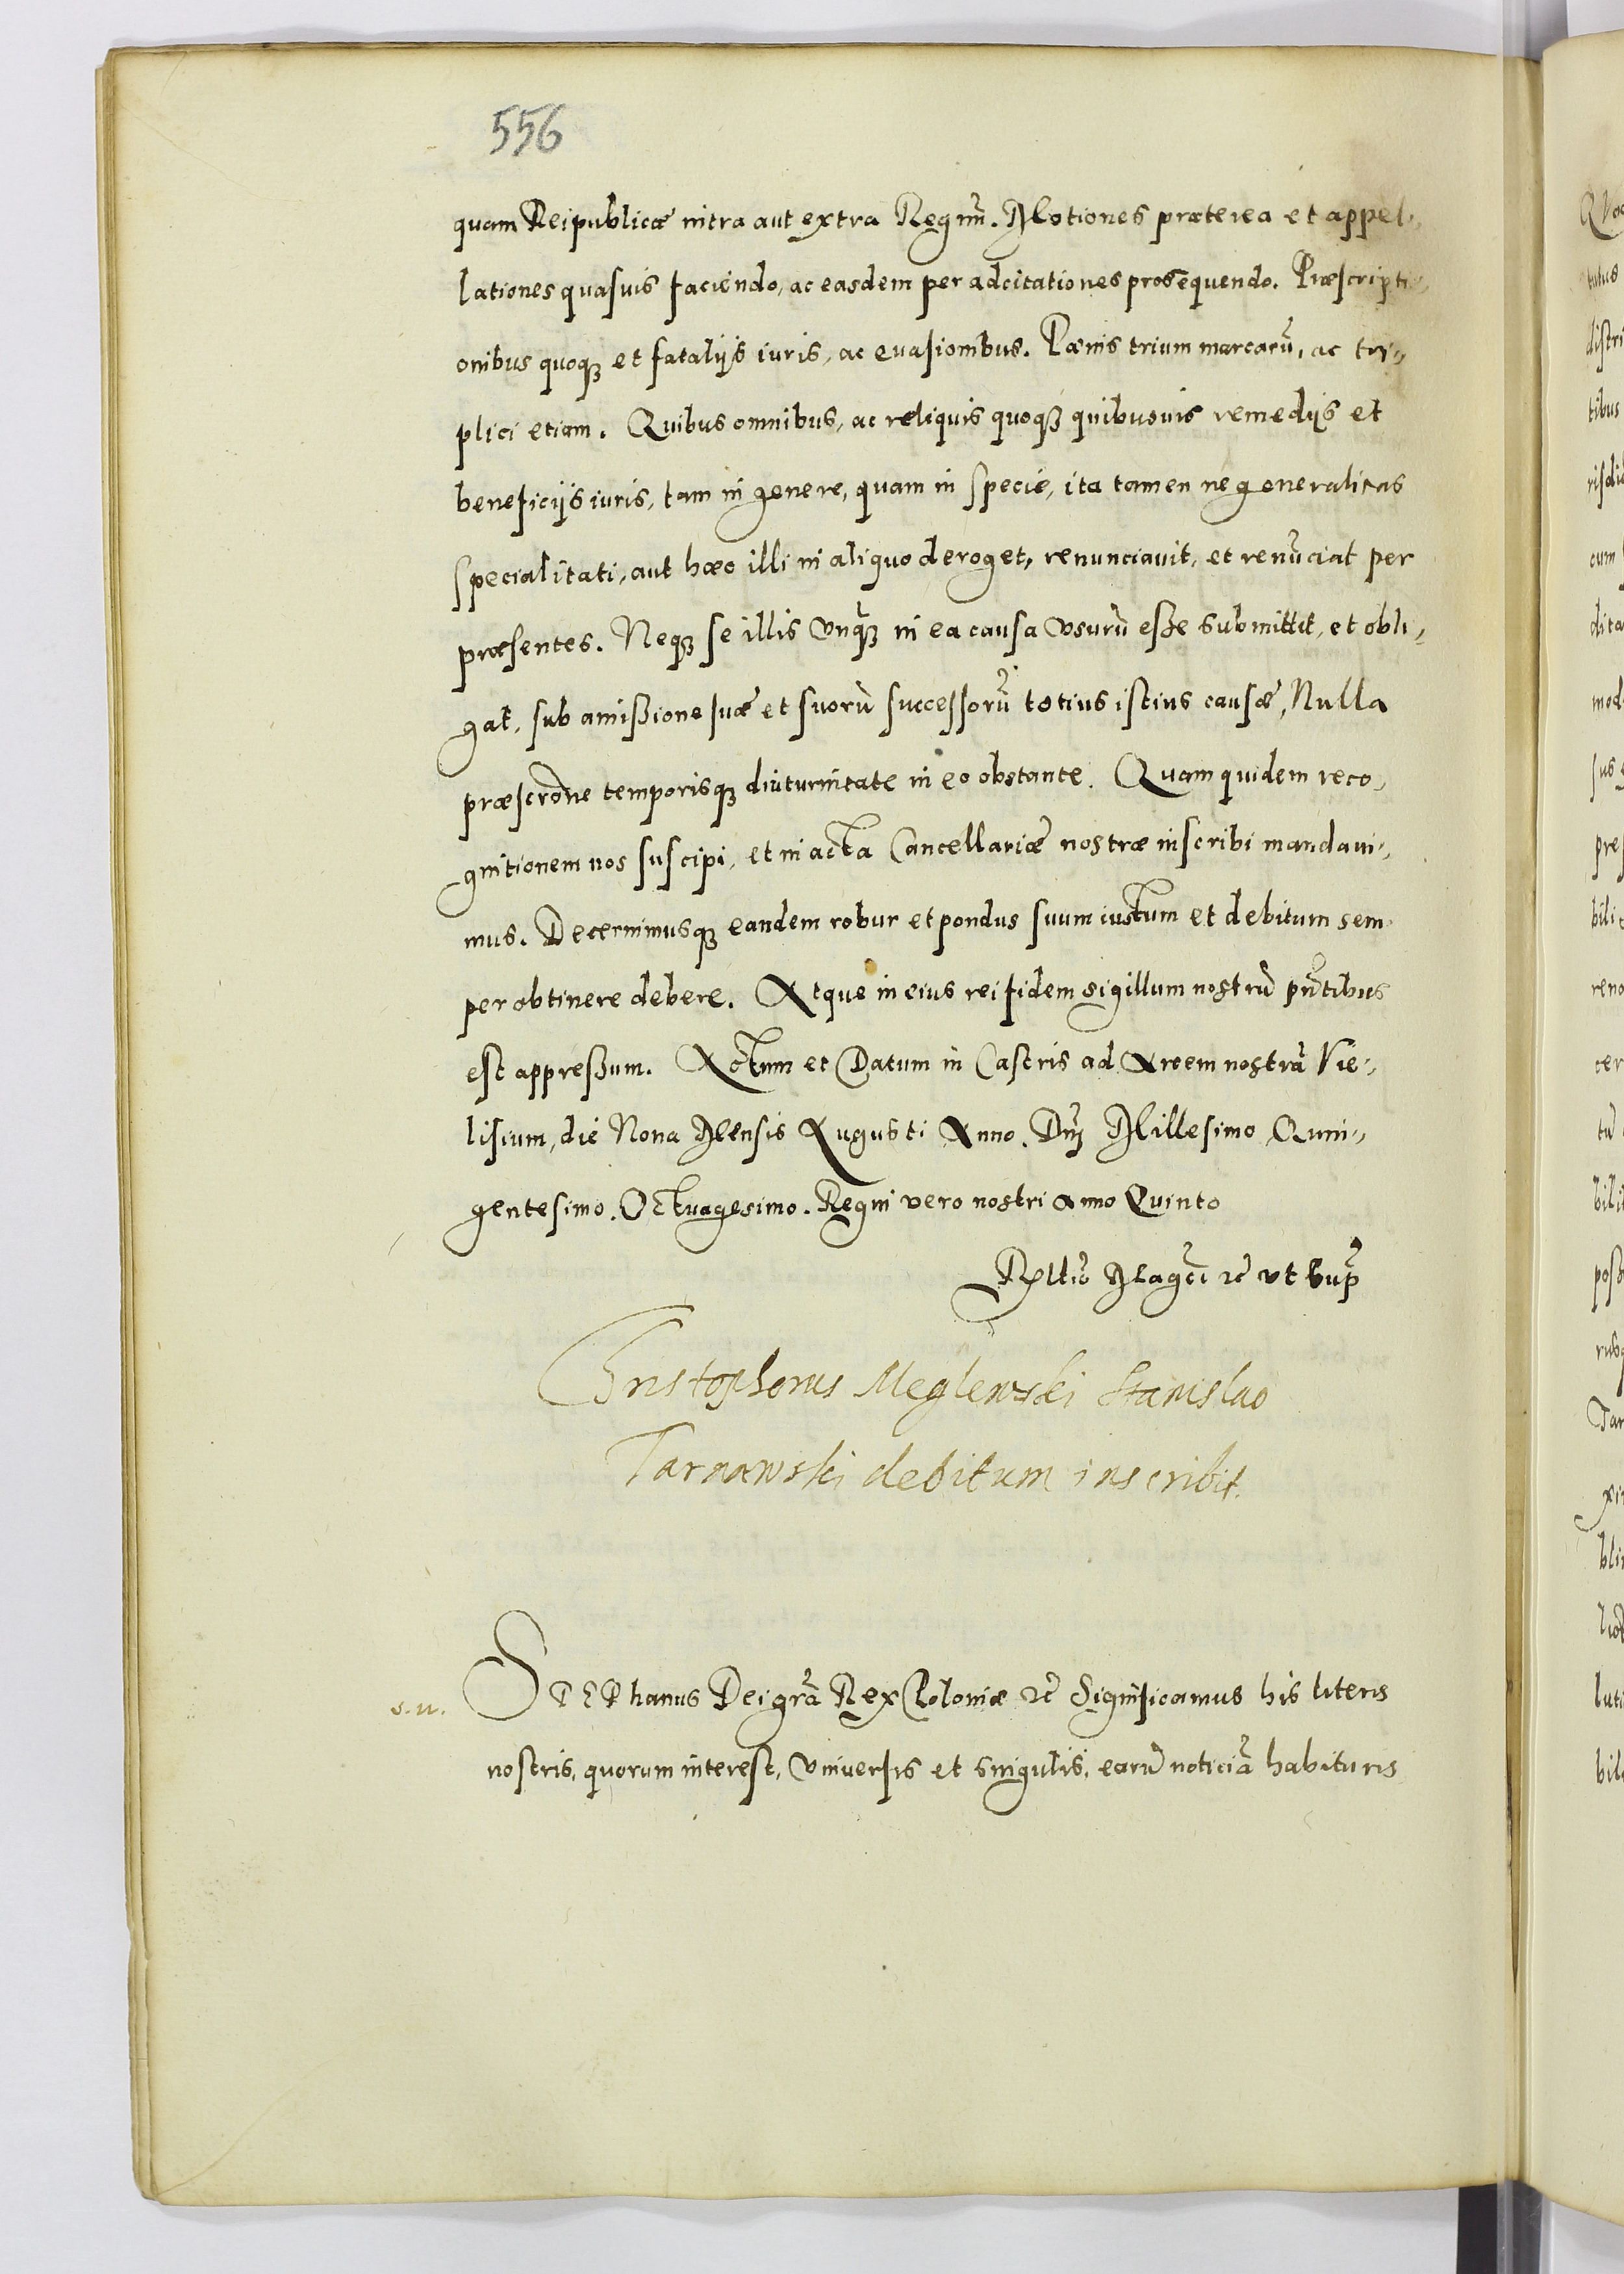 556
quam Reipublicæ intra aut extra Regnũ. Motiones præterea et appel-
lationes quasvis faciendo, ac easdem per adcitationes prosequendo. Præscripti-
onibus quoqȝ et fatalijs iuris, ac evasionibus. Pœnis trium marcarũ, ac tri-
plici etiam. Quibus omnibus, ac reliquis quoqȝ quibusvis remedijs et
beneficijs iuris, tam in genere, quam in specie, ita tamen ne generalitas
specialitati, aut hæc illi in aliquo deroget, renunciavit, et renũciat per
præsentes. Neqȝ se illis vnqȝ in ea causa vsurũ esse submittit, et obli-
gat, sub amissione suæ et suorũ successorũ totius istius causæ, Nulla
præscrõne temporisqȝ diuturnitate in eo obstante. Quam quidem reco-
gnitionem nos suscipi, et in acta Cancellariæ nostræ inscribi mandavi-
mus. Decernimusqȝ eandem robur et pondus suum iustum et debitum sem
per obtinere debere. Atque in eius rei fidem sigillum nostrũ pñtibus
est appressum. Actum et Datum in Castris ad Arcem nostrã Vie-
lisium, die Nona Mensis Augusti Anno Dnj Millesimo Quin-
gentesimo Octuagesimo. Regni vero nostri anno Quinto
Rltio Magci ꝛc̃ vt sup̃
Christophorus Meglewski Stanislao
Tarnawski debitum inscribit.
s. n.
STEPhanus Dei grã Rex Poloniæ ꝛc̃ Significamus his literis
nostris, quorum interest, vniversis et singulis, earũ noticiã habituris